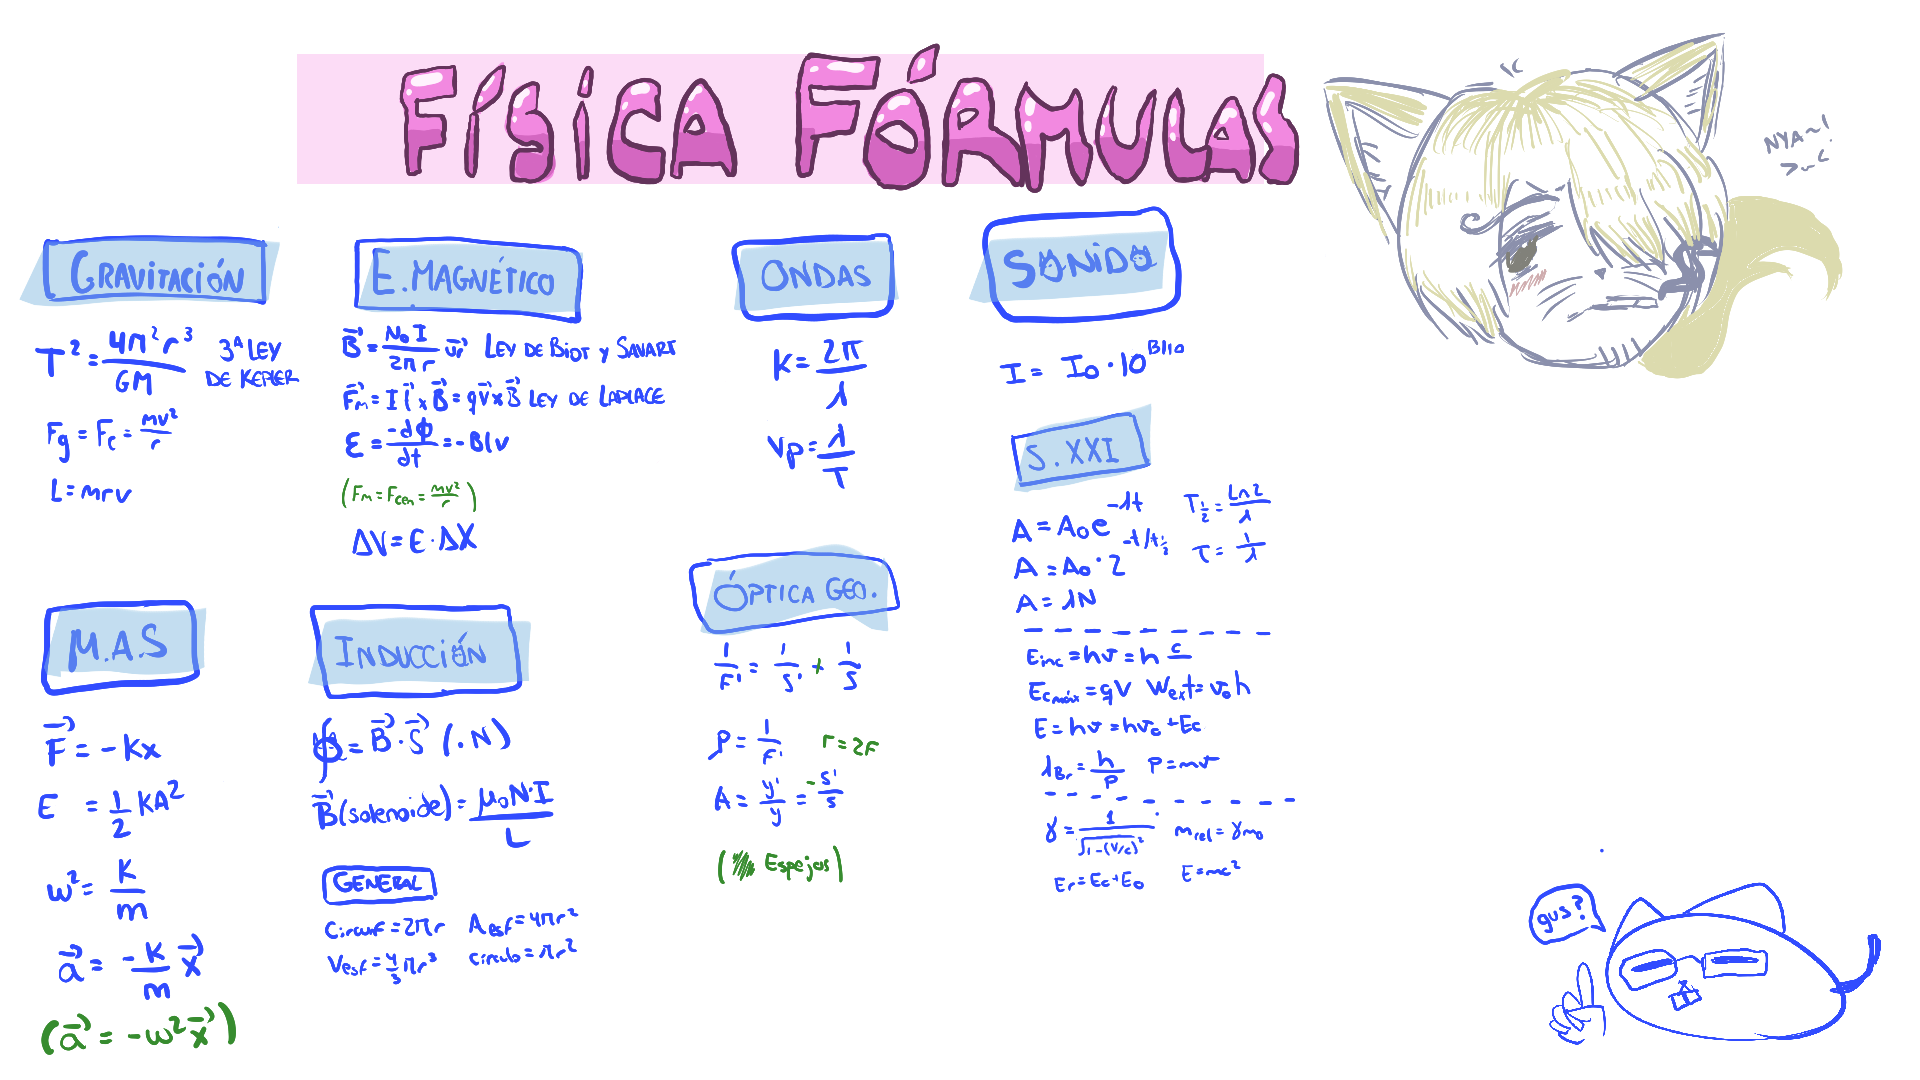 FÍSICA FÓRMULAS
NYA~!
>~<
GRAVITACIÓN
T² = 4π²r³/GM 3ª LEY DE KEPLER
Fg = Fc = mv²/r
L = mrv
E. MAGNÉTICO
B⃗ = N₀I/2πr u⃗r LEY DE BIOT Y SAVART
F⃗m = I l⃗ x B⃗ = q v⃗ x B⃗ LEY DE LAPLACE
ε = -dϕ/dt = -Blv
(Fm = Fcen = mv²/r)
ΔV = E · ΔX
ONDAS
K = 2π/λ
Vp = λ/T
SONIDO
I = I₀ · 10^B/10
S. XXI
A = A₀e^-λt T½ = Ln2/λ
A = A₀ · 2^-t/t½ τ = 1/λ
A = λN
Einc = hν = h c
Ecmáx = qV Wext = ν₀h
E = hν = hν₀ + Ec
λBr = h/p P = mv
γ = 1/√1-(v/c)² mrel = γm₀
Er = Ec + E₀ E = mc²
M.A.S
F⃗ = -Kx
E = 1/2 KA²
w² = K/m
a⃗ = -K/m x⃗
(a⃗ = -w²x⃗)
INDUCCIÓN
ϕ = B⃗ · S⃗ (· N)
B⃗ (solenoide) = μ₀N·I/L
GENERAL
Circunf = 2πr Aesf = 4πr²
Vesf = 4/3 πr³ círculo = πr²
ÓPTICA GEO.
1/F' = 1/S' + 1/S
P = 1/F' r = 2F
A = y'/y = -s'/s
(Espejos)
gus?